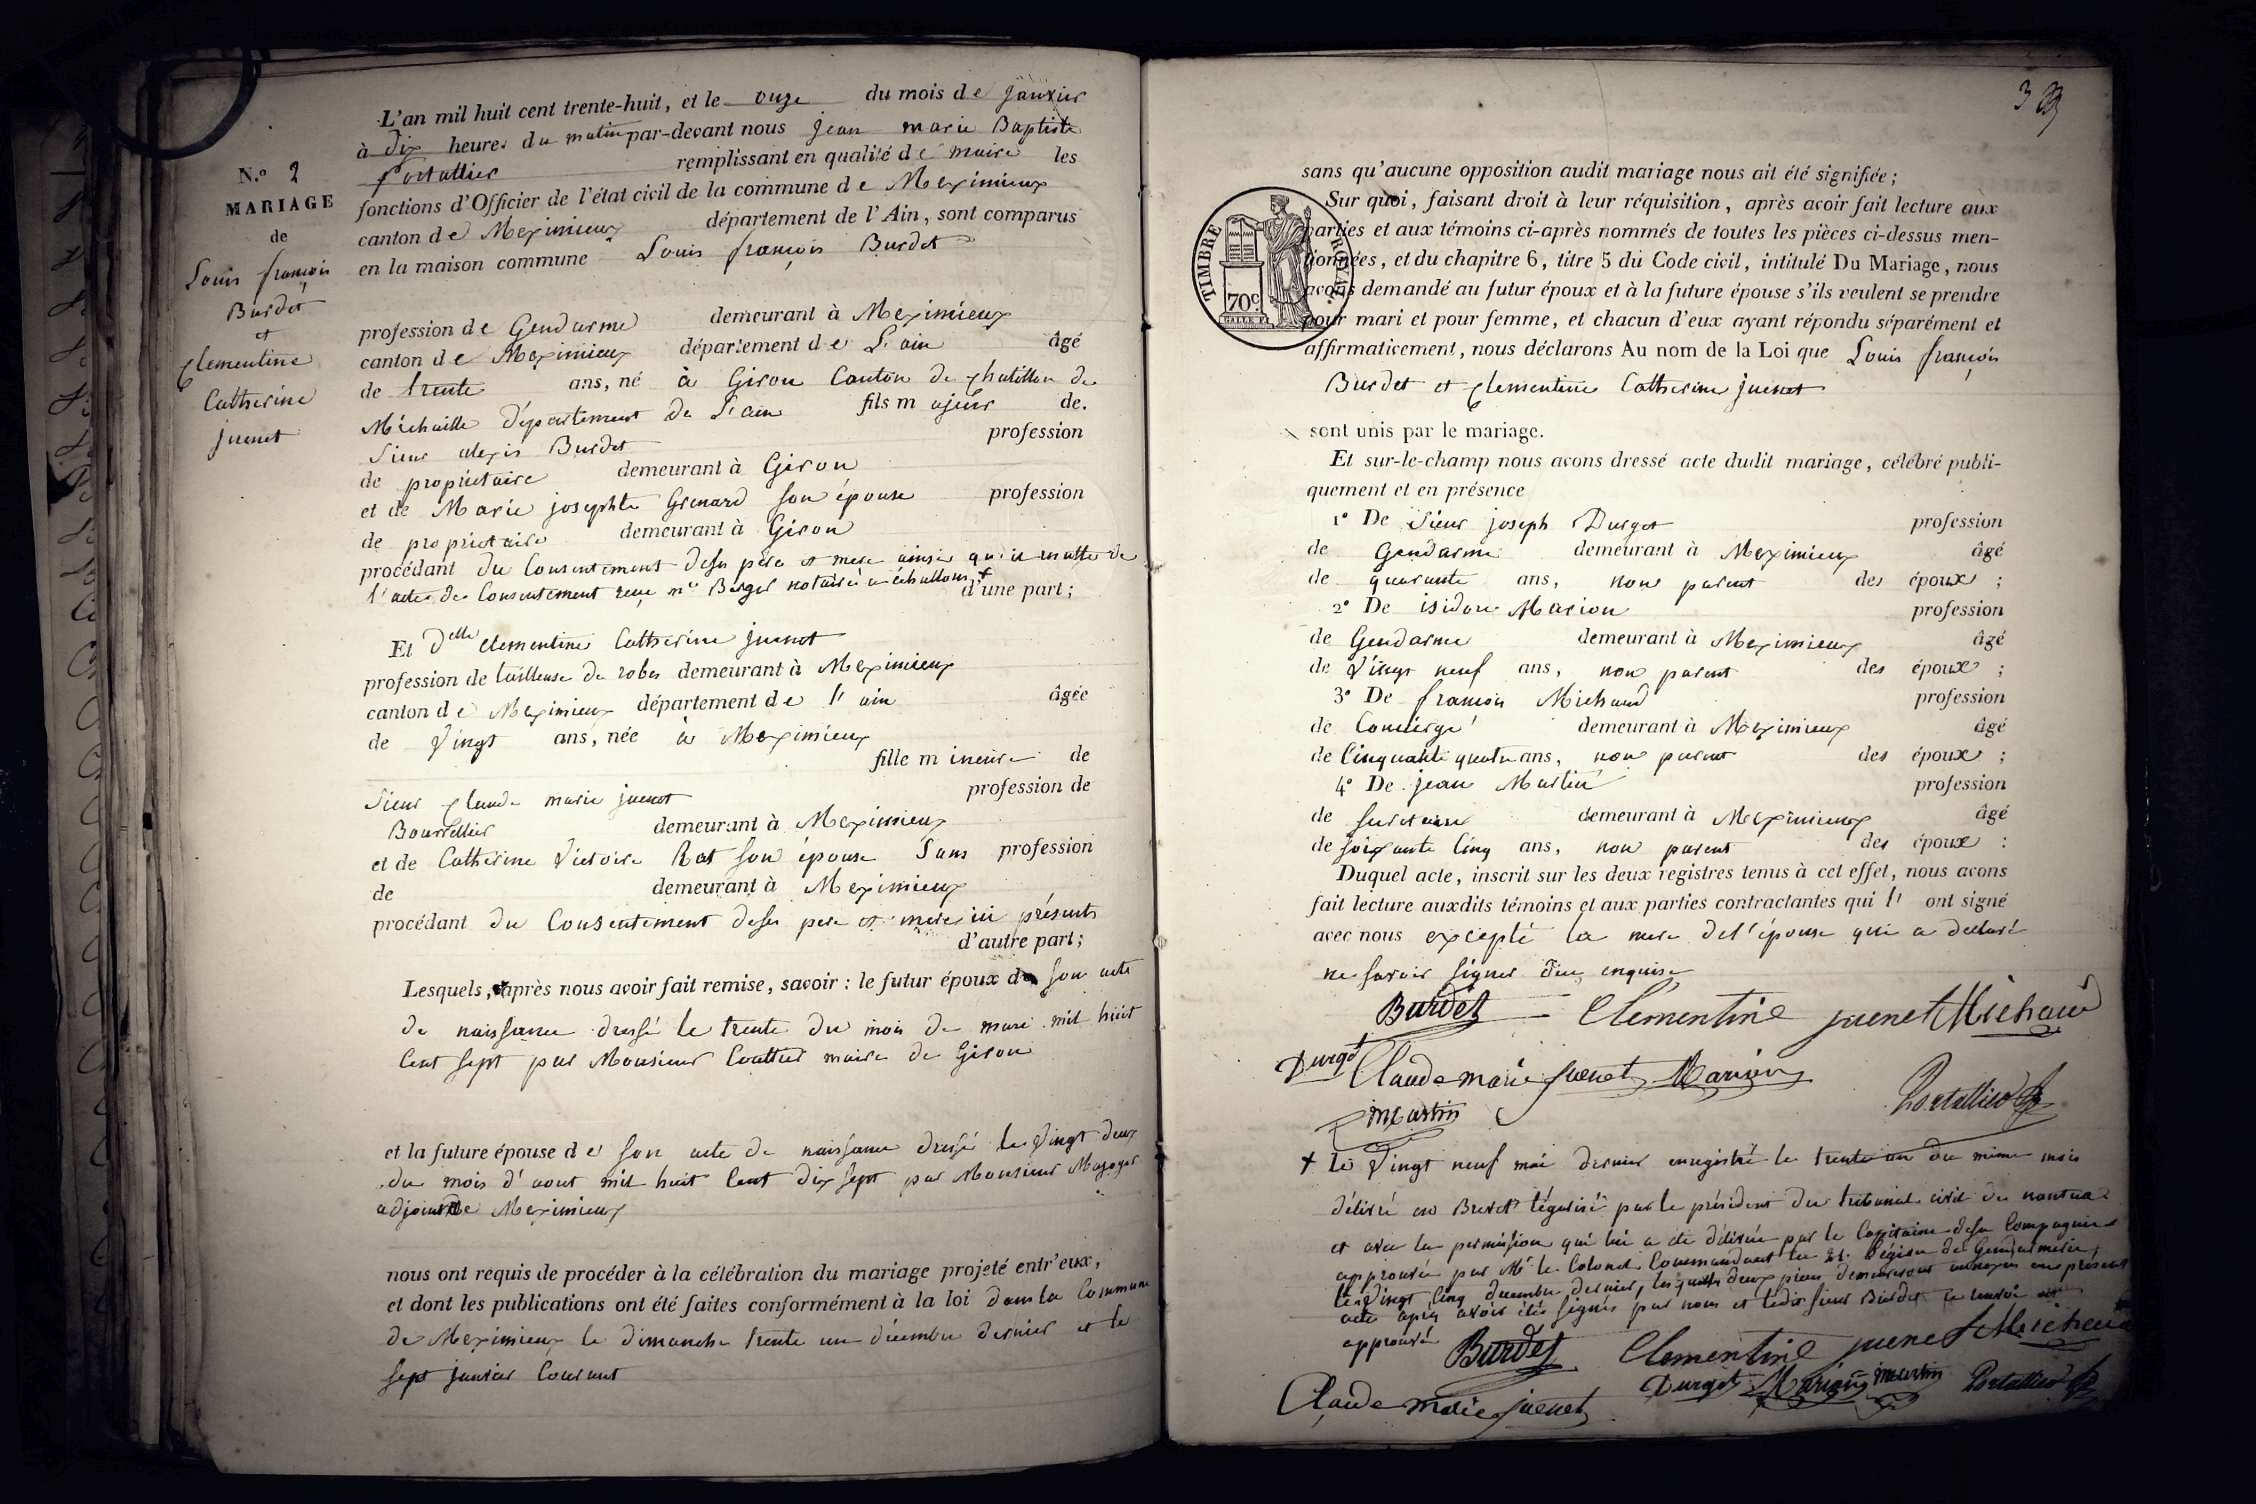 N.º 2
MARIAGE
de
Louis françois
Burdet
et
Clementine
Catherine
juenet
L'an mil huit cent trente-huit, et le onze du mois de janvier
à dix heures du matin par-devant nous jean marie Baptiste
Portallier remplissant en qualité de maire les
fonctions d'Officier de l'état civil de la commune de Meximieux
canton de Meximieux département de l'Ain, sont comparus
en la maison commune Louis françois Burdet
profession de Gendarme demeurant à Meximieux
canton de Meximieux département de L'ain âgé
de trente ans, né à Giron Canton de chatillon de
Michaille département de L'ain fils majeur de
Sieur alexis Burdet profession
de propriétaire demeurant à Giron
et de Marie josephte Grenard son épouse profession
de propriétaire demeurant à Giron
procédant du Consentement deses père et mere ainsi qu'il résulte de
l'acte de Consentement reçu me Berger notaire à échallon + d'une part;
Et Delle Clementine Catherine juenet
profession de tailleuse de robes demeurant à Meximieux
canton de Meximieux département de l'ain âgée
de vingt ans, née à Meximieux
fille mineure de
Sieur Claude marie juenet profession de
Bourrellier demeurant à Meximieux
et de Catherine Victoire Rat son épouse Sans profession
de demeurant à Meximieux
procédant du Consentement deses pere et mere ici présents
d'autre part;
Lesquels, après nous avoir fait remise, savoir : le futur époux de son acte
de naissance dressé le trente du mois de mars mil huit
Cent sept par Monsieur maire de Giron
et la future épouse de son acte de naissance dressé le vingt deux
du mois d'aout mil huit Cent dix sept par Monsieur
adjoint de Meximieux
nous ont requis de procéder à la célébration du mariage projeté entr'eux,
et dont les publications ont été faites conformément à la loi dans la Commune
de Meximieux le dimanche trente un décembre dernier et le
sept janvier Courant
3
TIMBRE ROYAL
70c
sans qu'aucune opposition audit mariage nous ait été signifiée;
Sur quoi, faisant droit à leur réquisition, après avoir fait lecture aux
parties et aux témoins ci-après nommés de toutes les pièces ci-dessus men-
tionnées, et du chapitre 6, titre 5 du Code civil, intitulé Du Mariage, nous
avons demandé au futur époux et à la future épouse s'ils veulent se prendre
pour mari et pour femme, et chacun d'eux ayant répondu séparément et
affirmativement, nous déclarons Au nom de la Loi que Louis françois
Burdet et Clementine Catherine juenet
sont unis par le mariage.
Et sur-le-champ nous avons dressé acte dudit mariage, célébré publi-
quement et en présence
1º De Sieur joseph Durget profession
de Gendarme demeurant à Meximieux âgé
de quarante ans, non parent des époux ;
2º De isidore Marion profession
de Gendarme demeurant à Meximieux âgé
de vingt neuf ans, non parent des époux ;
3º De françois Michaud profession
de Concierge demeurant à Meximieux âgé
de Cinquante quatre ans, non parent des époux ;
4º De jean Martin profession
de Secretaire demeurant à Meximieux âgé
de soixante Cinq ans, non parent des époux :
Duquel acte, inscrit sur les deux registres tenus à cet effet, nous avons
fait lecture auxdits témoins et aux parties contractantes qui l' ont signé
avec nous excepté la mere del'épouse qui a declaré
ne savoir signer d'en enquise
Burdet Clementine juenet Michaud
Durget Claude marie juenet Marion
Martin Portallier
+ le vingt neuf mai dernier enregistré le trente un du même mois
délivré en Brevet légalisé par le président du tribunal civil de nantua
et avec la permission qui lui a été délivrée par le Capitaine desa Compagnie
approuvée par Mr le Colonel Commandant la 21. Légion de Gendarmerie
le vingt Cinq decembre dernier, lesquelles deux pieces demeureront annexées au présent
acte après avoir été signées par nous et ledit sieur Burdet ce renvoi
approuvé
Burdet Clementine juenet Michaud
Durget Marion Martin Portallier
Claude marie juenet